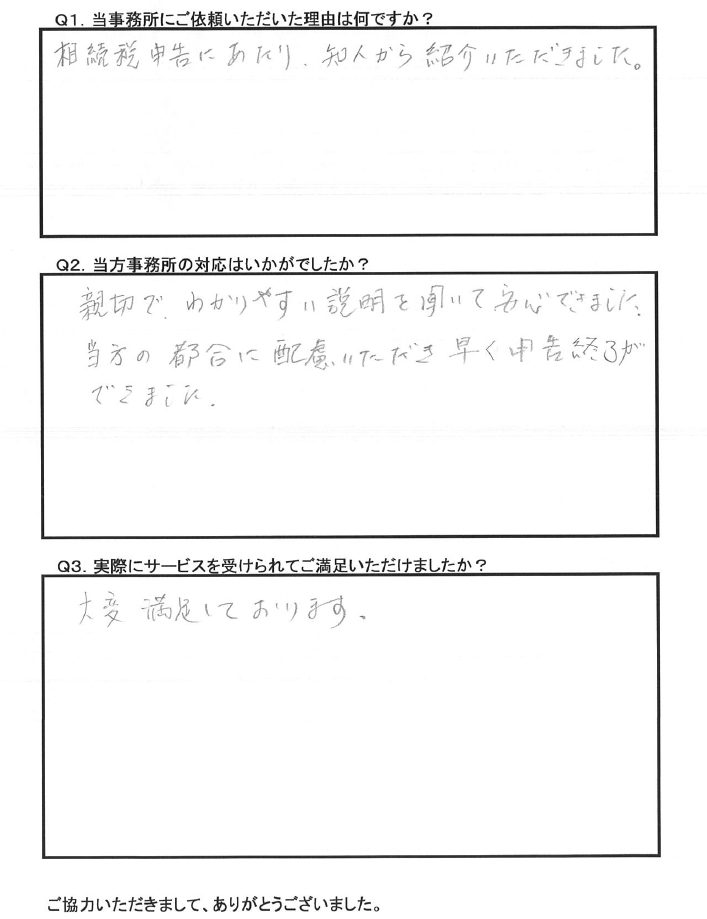 Q1. 当事務所にご依頼いただいた理由は何ですか？
相続税申告にあたり、知人から紹介いただきました。
Q2. 当方事務所の対応はいかがでしたか？
親切で、わかりやすい説明を聞いて安心できました。
当方の都合に配慮いただき早く申告終了が
できました。
Q3. 実際にサービスを受けられてご満足いただけましたか？
大変満足しております。
ご協力いただきまして、ありがとうございました。